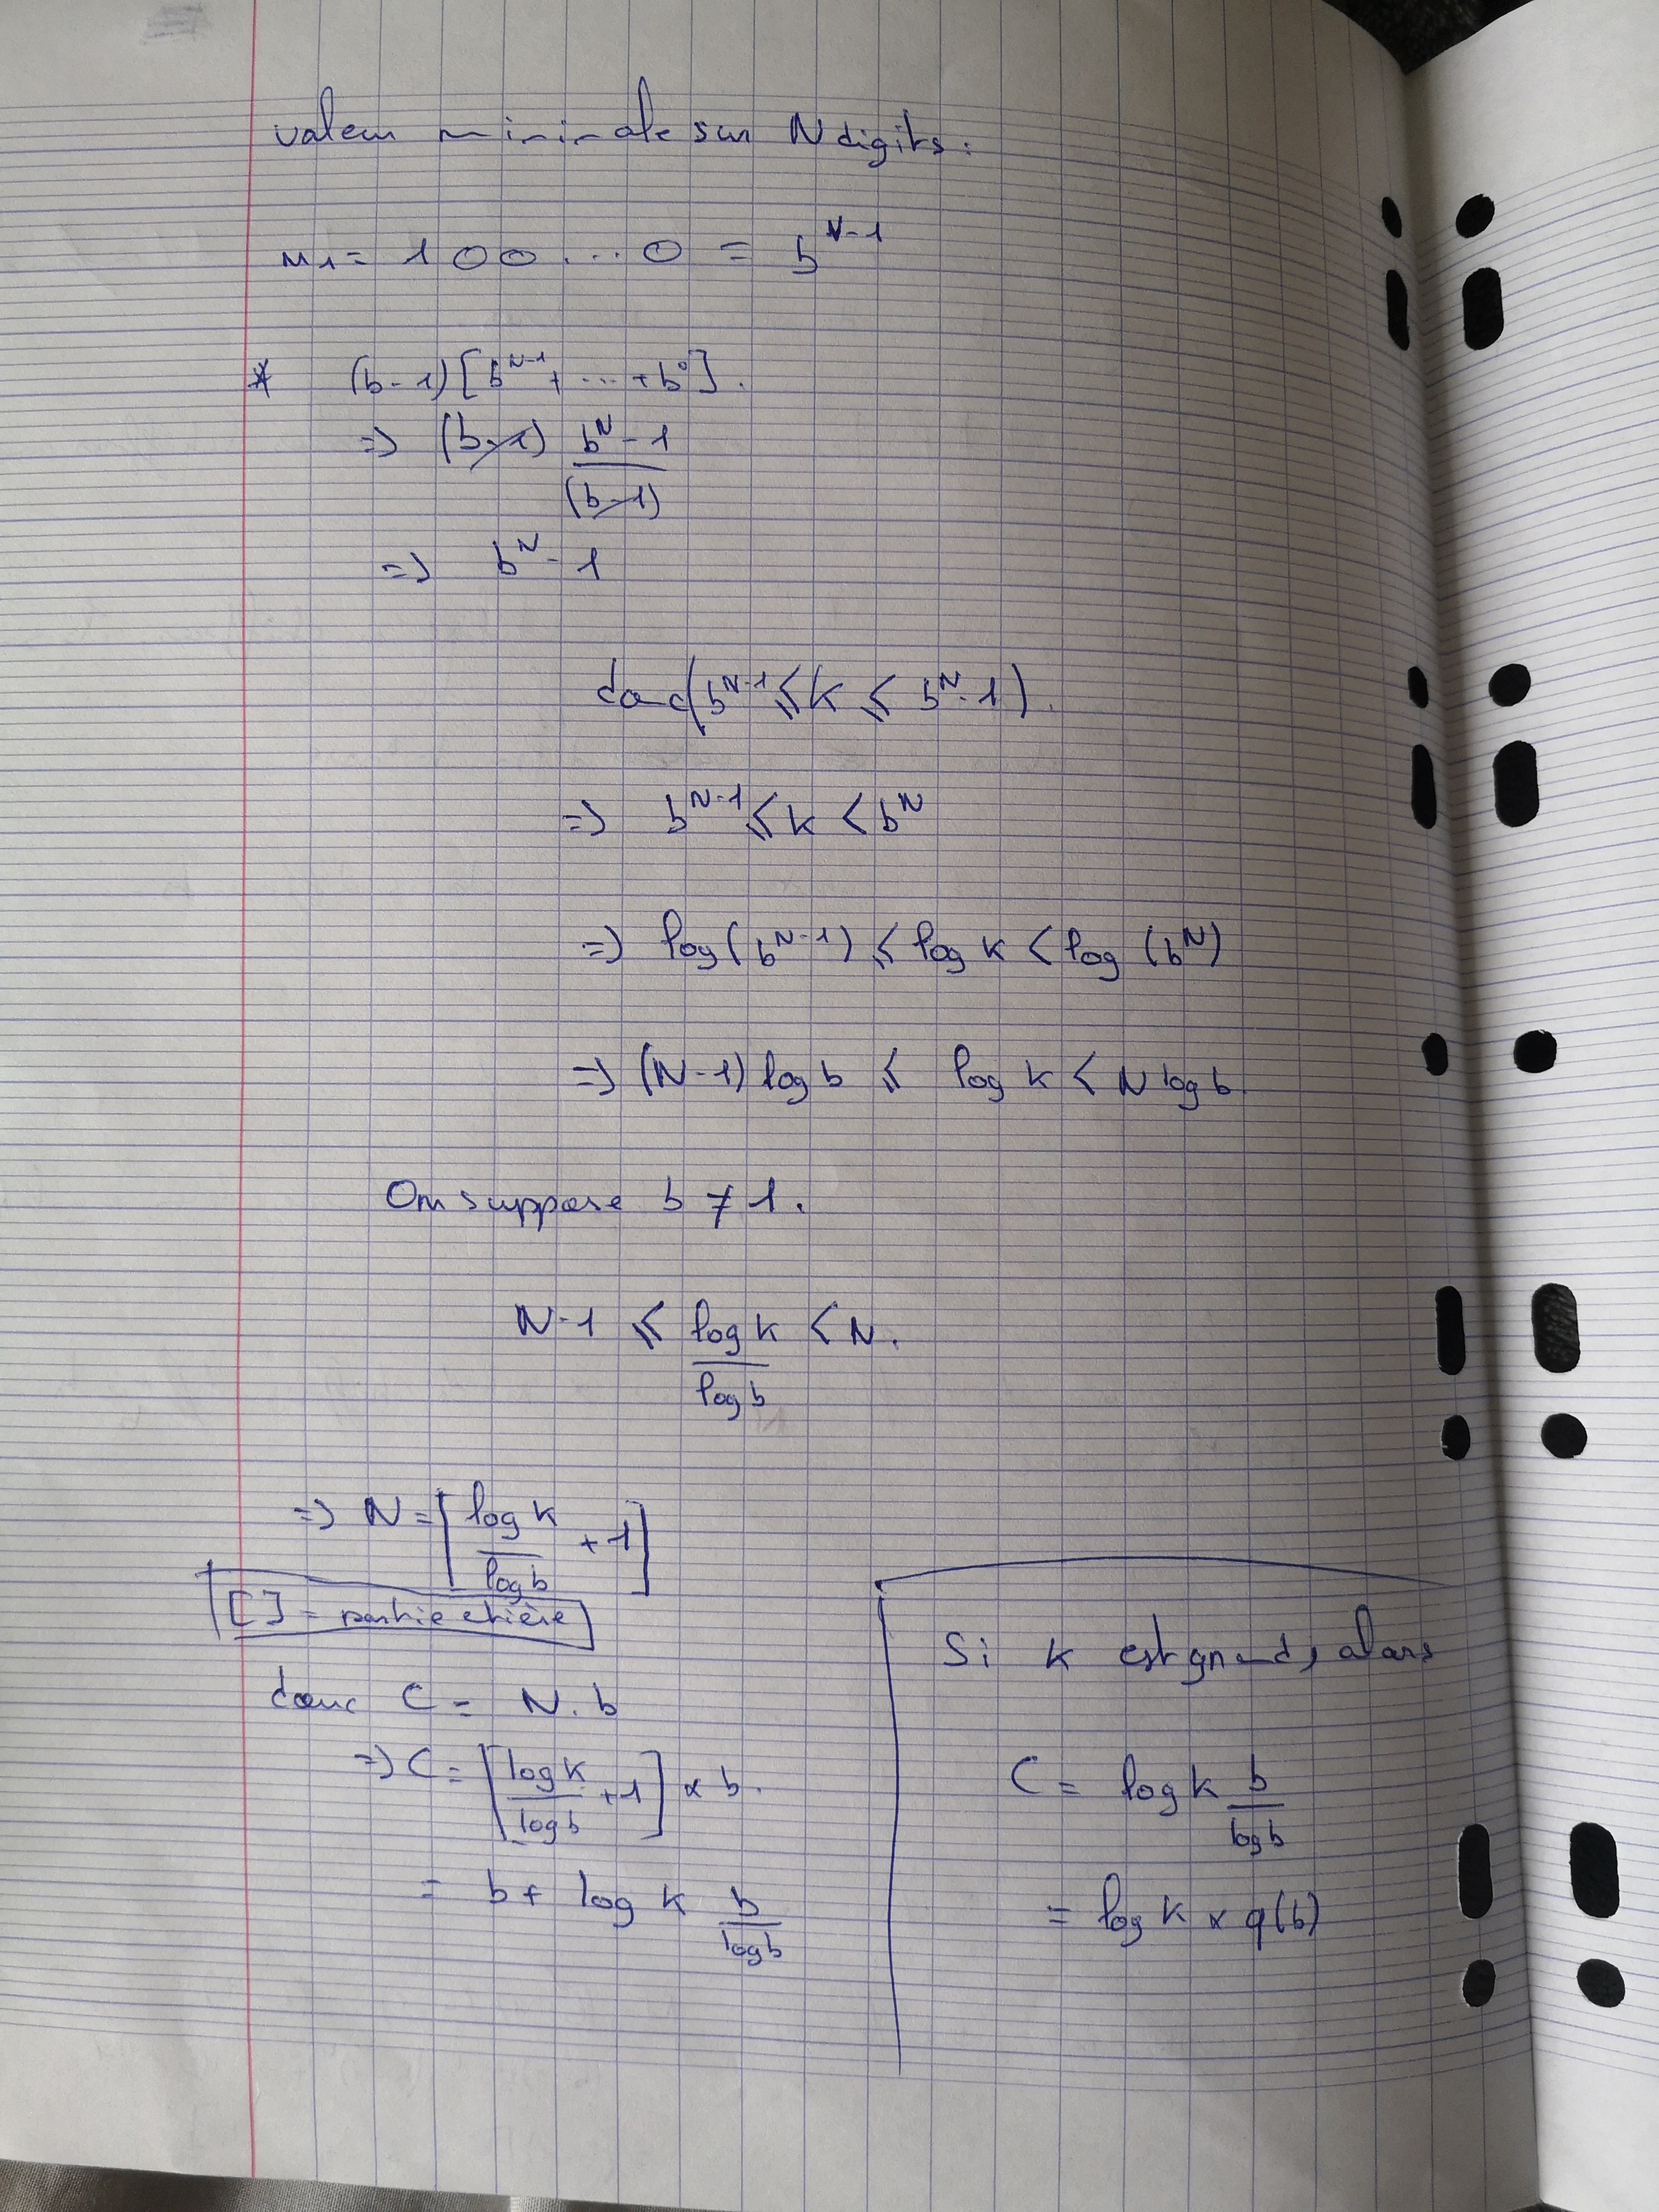 valeur minimale sur N digits.
n₁ = 1 0 0 ... 0 = b^{N-1}
* (b-1)[b^{N-1} + ... + b^0].
=> (b-1) \frac{b^N - 1}{(b-1)}
=> b^N - 1
donc (b^{N-1} ⩽ k ⩽ b^N - 1).
=> b^{N-1} ⩽ k < b^N
=> log(b^{N-1}) ⩽ log k < log (b^N)
=> (N-1) log b ⩽ log k < N log b.
On suppose b ≠ 1.
N-1 ⩽ \frac{log k}{log b} < N.
=> N = [\frac{log k}{log b} + 1]
[ ] = partie etière
donc C = N . b
=> C = [\frac{log k}{log b} + 1] × b.
= b + log k \frac{b}{log b}
Si k est grand, alors
C = log k \frac{b}{log b}
= log k × φ(b)